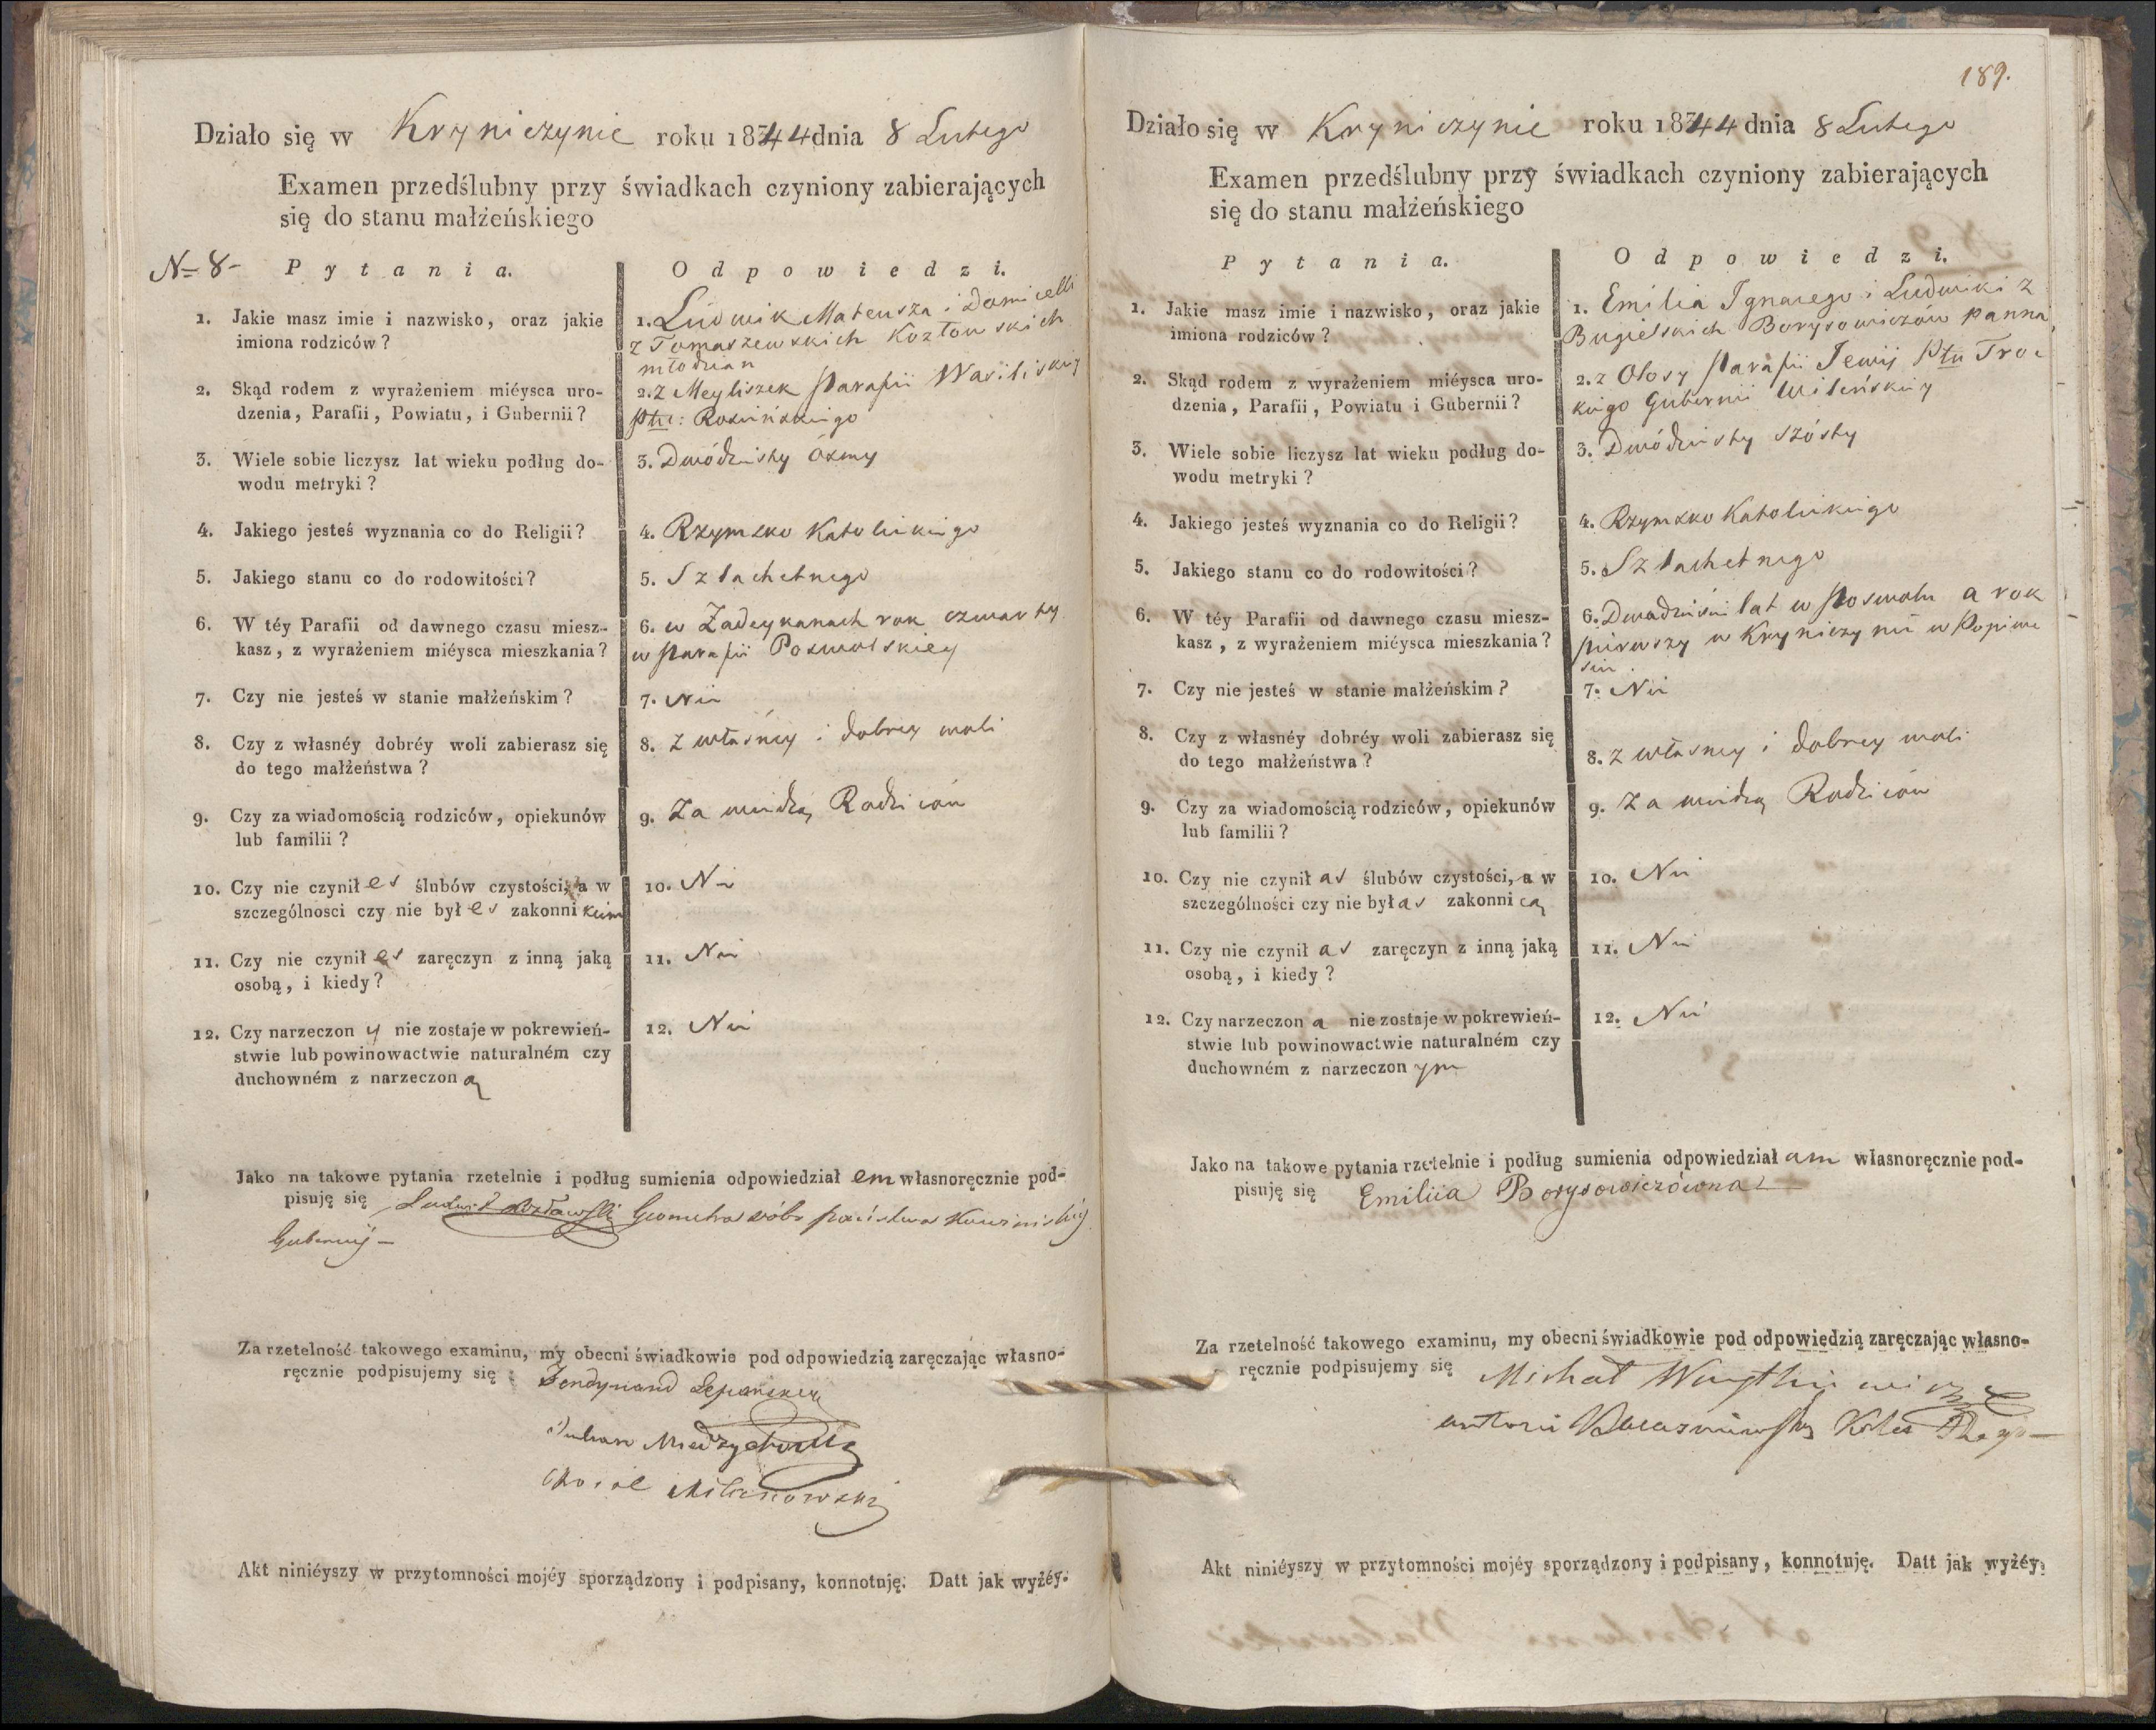 Działo się w Kryniczynie roku 1844 dnia 8 Lutego
Examen przedślubny przy świadkach czyniony zabierających
się do stanu małżeńskiego
N 8- Pytania. Odpowiedzi.
1. Jakie masz imie i nazwisko, oraz jakie
imiona rodziców?
1. Ludwik Mateusza i Domicelli
z Tomaszewskich Kozłowskich
młodzian
2. Skąd rodem z wyrażeniem miéysca uro-
dzenia, Parafii, Powiatu, i Gubernii?
2. z Meyliszek Parafii Wasiliskiey
Ptu: Rosieńskiego
3. Wiele sobie liczysz lat wieku podług do-
wodu metryki?
3. Dwódziesty ósmy
4. Jakiego jesteś wyznania co do Religii?
4. Rzymsko Katolickiego
5. Jakiego stanu co do rodowitości?
5. Szlachetnego
6. W téy Parafii od dawnego czasu miesz-
kasz, z wyrażeniem miéysca mieszkania?
6. w Zadeykanach rok czwarty
w Parafii Poswolskiey
7. Czy nie jesteś w stanie małżeńskim?
7. Nie
8. Czy z własnéy dobréy woli zabierasz się
do tego małżeństwa?
8. z własney i dobrey woli
9. Czy za wiadomością rodziców, opiekunów
lub familii?
9. Za wiedzą Rodziców
10. Czy nie czynił es ślubów czystości, a w
szczególnosci czy nie był es zakonni kiem
10. Nie
11. Czy nie czynił es zaręczyn z inną jaką
osobą, i kiedy?
11. Nie
12. Czy narzeczon y nie zostaje w pokrewień-
stwie lub powinowactwie naturalném czy
duchowném z narzeczon ą
12. Nie
Jako na takowe pytania rzetelnie i podług sumienia odpowiedział em własnoręcznie pod-
pisuję się Ludwik Kozłowski Geometra dóbr państwa Kowieńskiej
Gubernij
Za rzetelność takowego examinu, my obecni świadkowie pod odpowiedzią zaręczając własno-
ręcznie podpisujemy się Ferdynand
Julian
Karol Milanowski
Akt niniéyszy w przytomności mojéy sporządzony i podpisany, konnotuję. Datt jak wyżéy.
189.
Działo się w Kryniczynie roku 1844 dnia 8 Lutego
Examen przedślubny przy świadkach czyniony zabierających
się do stanu małżeńskiego
Pytania. Odpowiedzi.
1. Jakie masz imie i nazwisko, oraz jakie
imiona rodziców?
1. Emilia Ignacego i Ludwiki z
Bugielskich Borysowiczów panna
2. Skąd rodem z wyrażeniem miéysca uro-
dzenia, Parafii, Powiatu i Gubernii?
2. z Olosy Parafii Jewij Ptu Troc
kiego Gubernii Wileńskiey
3. Wiele sobie liczysz lat wieku podług do-
wodu metryki?
3. Dwódziesty szósty
4. Jakiego jesteś wyznania co do Religii?
4. Rzymsko Katolickiego
5. Jakiego stanu co do rodowitości?
5. Szlachetnego
6. W téy Parafii od dawnego czasu miesz-
kasz, z wyrażeniem miéysca mieszkania?
6. Dwadzieście lat w Poswolu a rok
pierwszy w Kryniczynie w Popiwe
siu
7. Czy nie jesteś w stanie małżeńskim?
7. Nie
8. Czy z własnéy dobréy woli zabierasz się
do tego małżeństwa?
8. z własney i dobrey woli
9. Czy za wiadomością rodziców, opiekunów
lub familii?
9. Za wiedzą Rodziców
10. Czy nie czynił as ślubów czystości, a w
szczególności czy nie był as zakonni cą
10. Nie
11. Czy nie czynił as zaręczyn z inną jaką
osobą, i kiedy?
11. Nie
12. Czy narzeczon a nie zostaje w pokrewień-
stwie lub powinowactwie naturalném czy
duchowném z narzeczon ym
12. Nie
Jako na takowe pytania rzetelnie i podług sumienia odpowiedział am własnoręcznie pod-
pisuję się Emiliia Borysowiczówna
Za rzetelność takowego examinu, my obecni świadkowie pod odpowiedzią zaręczając własno-
ręcznie podpisujemy się Michał
Antoni
Akt niniéyszy w przytomności mojéy sporządzony i podpisany, konnotuję. Datt jak wyżéy.